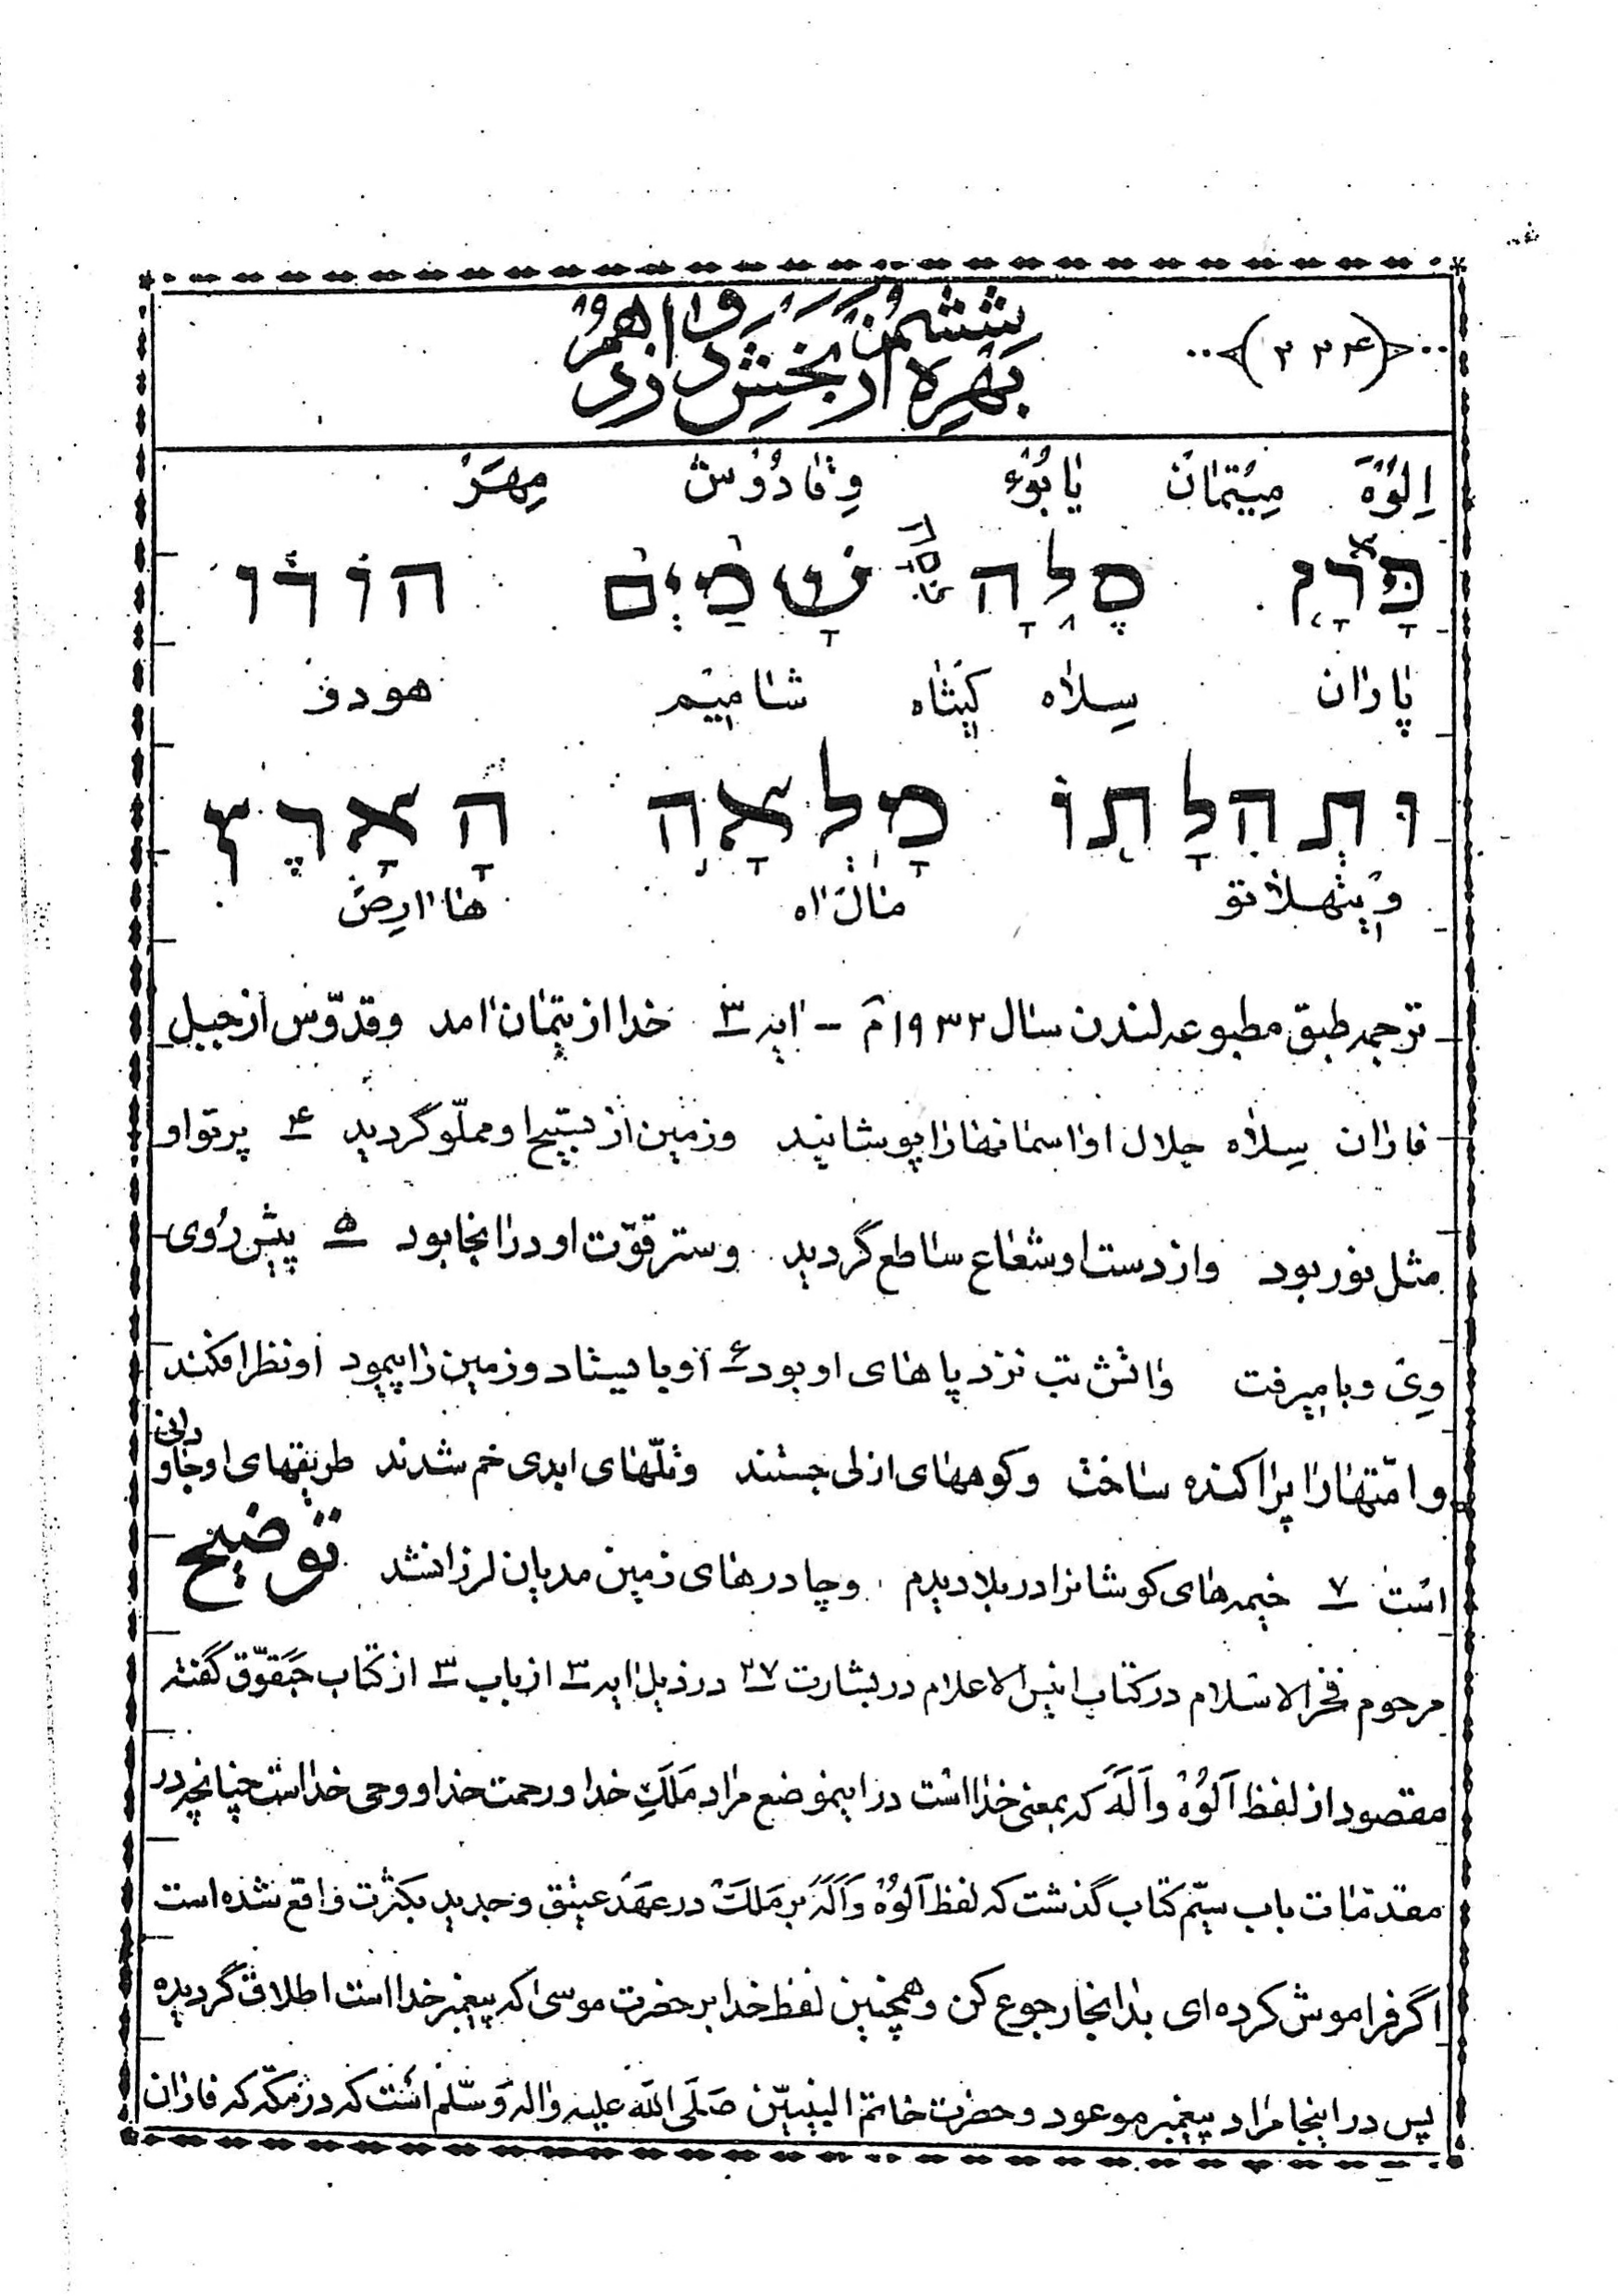 (۲۳۴)
ششمین
بهره از بخش
اِلُوَّه مِیتمان یابُوء وِقادُوش مِهَر
פָּארָן סֶלָה כִּסָּה שָׁמַיִם הוֹדוֹ
پاران سِلاه کیسّاه شامییم هودو
וּתְהִלָּתוֹ מָלְאָה הָאָרֶץ
وِیتهیلاتو مالَ ااه هااارِص
ترجمه طبق مطبوعه لندن سال ۱۹۳۲م – ایه ۳ خدا از تیمان امد وقدّوس از جبل
فاران سِلاه جلال او اسمانها را پوشانید وزمین از تسبیح او مملّو گردید ۴ پرتو او
مثل نور بود واز دست او شعاع ساطع گردید وستر قوّت او در انجا بود ۵ پیش رُوی
وِی وبا میرفت واتش تب نزد پاهای او بود ۶ او بایستاد وزمین را پیمود او نظر افکند
وامّتها را پراکنده ساخت وکوههای ازلی جستند وتلّهای ابدی خم شدند طریقهای او جاودانی
است ۷ خیمه های کوشانرا در بلا دیدم وچادرهای زمین مدیان لرزان شد توضیح
مرحوم فخر الاسلام در کتاب انیس الاعلام در بشارت ۲۷ در ذیل ایه ۳ از باب ۳ از کتاب حَبَقوّق گفته
مقصود از لفظ اَلُوُه واَلَه که بمعنی خدا است در اینموضع مراد مَلَکِ خدا ورحمت خدا ووحی خدا است چنانچه در
مقدّمات باب سیّم کتاب گذشت که لفظ اَلُوُه واَلَه بر مَلَک در عهد عتیق وجدید بکثرت واقع شده است
اگر فراموش کرده ای بدانجا رجوع کن وهمچنین لفظ خدا بر حضرت موسی که پیغمبر خدا است اطلاق گردیده
پس در اینجا مراد پیغمبر موعود وحضرت خاتم النبیّین صَلّی اللّه علیه واله وَسلّم است که در مکّه که فاران